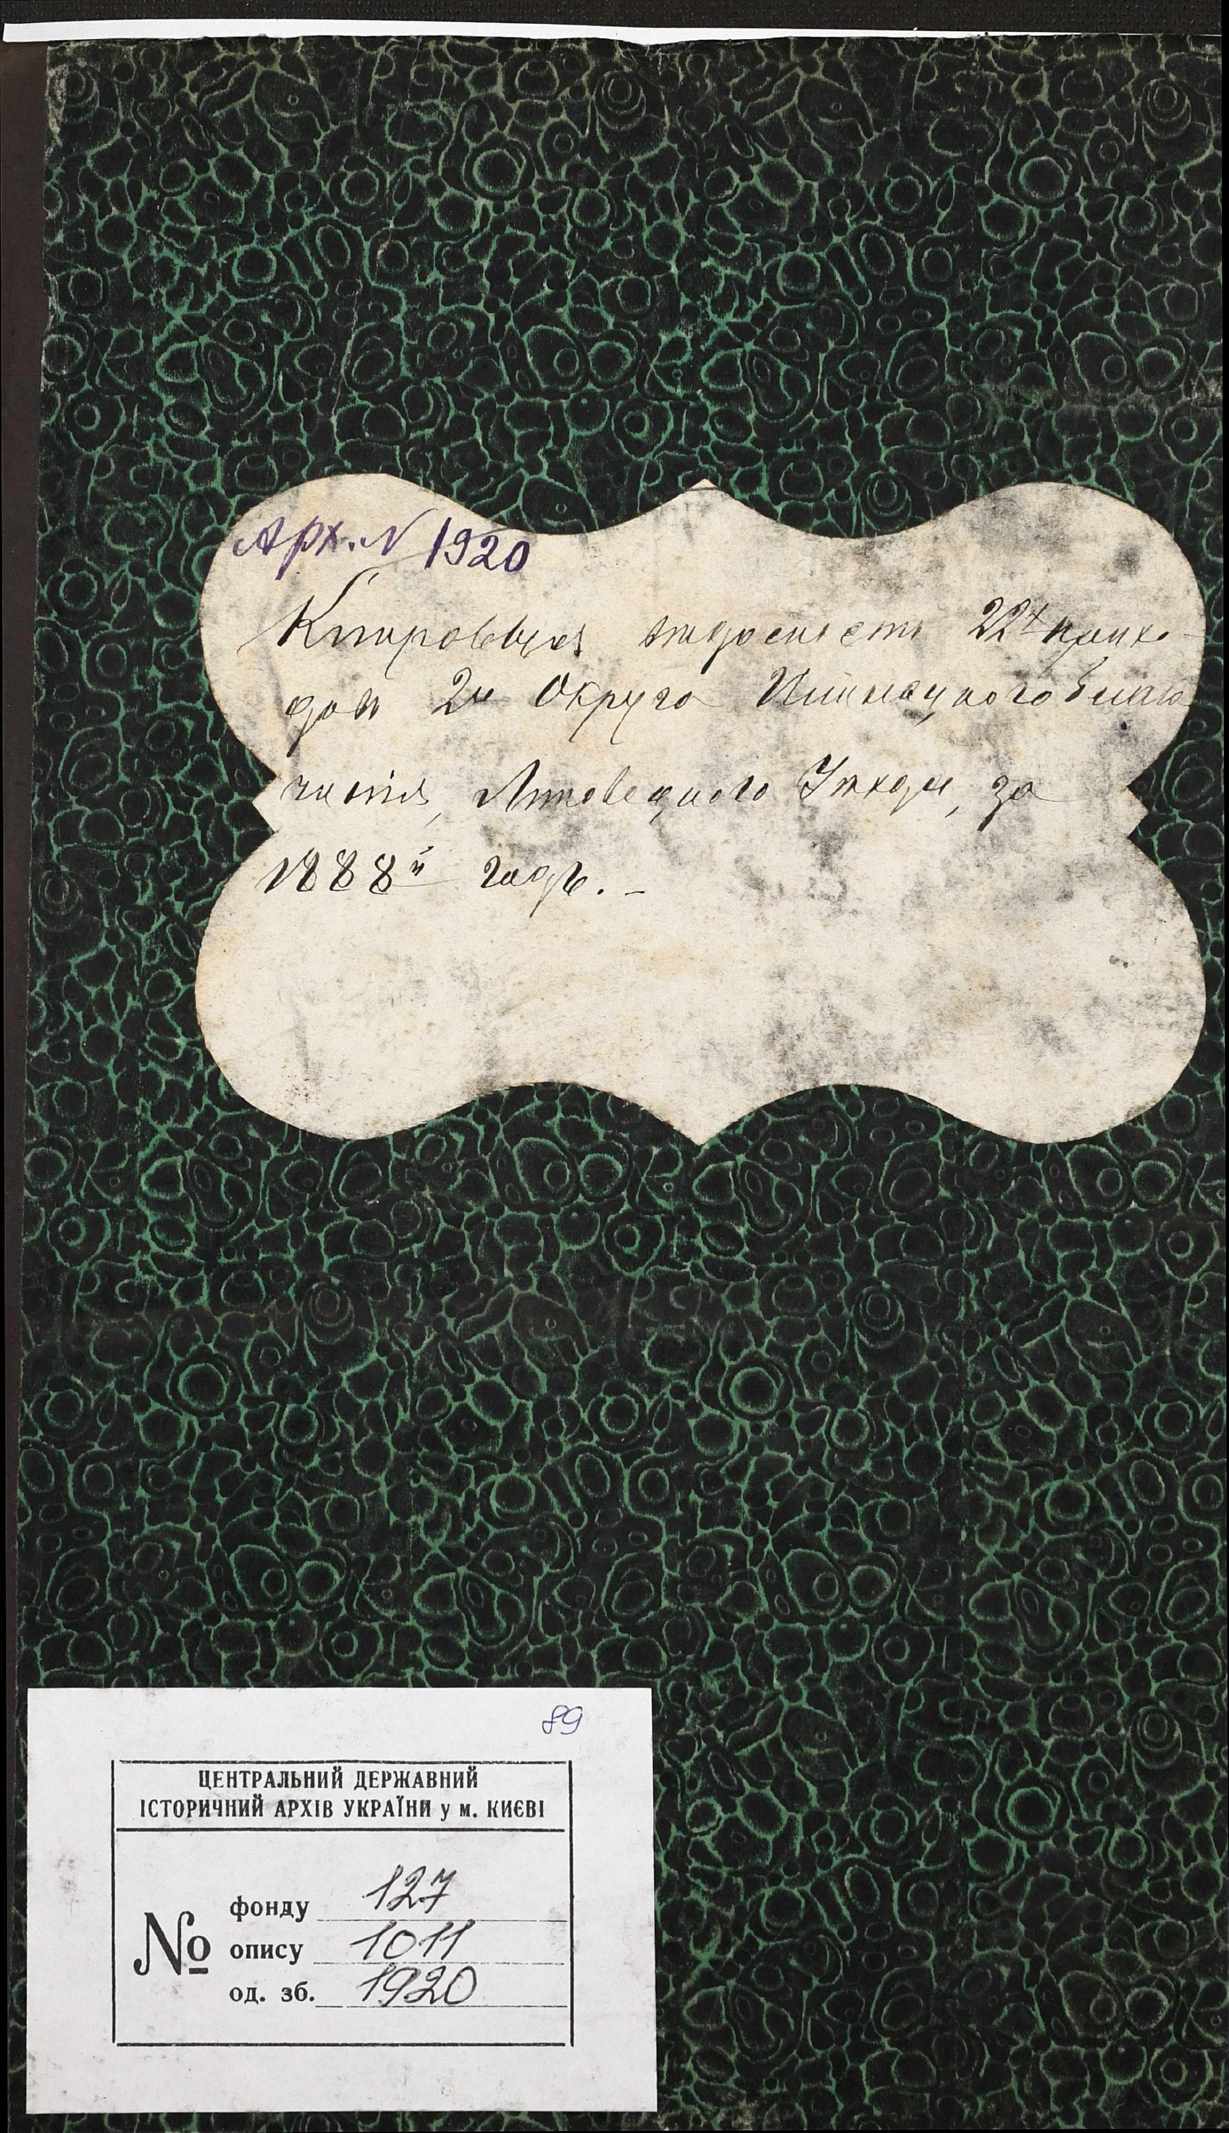 Арх. N 1920
Клировыя вѣдомости 22х прихо-
довъ 2го Округа Благо
чинія, Липовецкого Уѣзда, за
1888й годъ. –
89
ЦЕНТРАЛЬНИЙ ДЕРЖАВНИЙ
ІСТОРИЧНИЙ АРХІВ УКРАЇНИ у м. КИЄВІ
№
фонду 127
опису 1011
од. зб. 1920